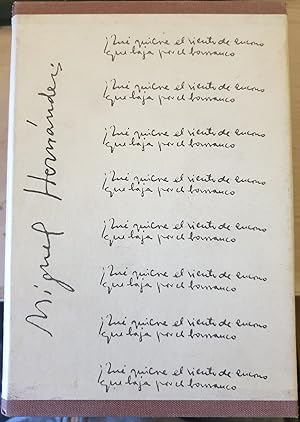 Miguel Hernández
¡Qué quiere el viento de encono
que baja por el barranco
¡Qué quiere el viento de encono
que baja por el barranco
¡Qué quiere el viento de encono
que baja por el barranco
¡Qué quiere el viento de encono
que baja por el barranco
¡Qué quiere el viento de encono
que baja por el barranco
¡Qué quiere el viento de encono
que baja por el barranco
¡Qué quiere el viento de encono
que baja por el barranco
¡Qué quiere el viento de encono
que baja por el barranco